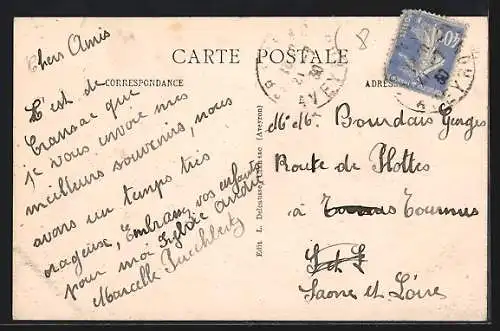 Chers Amis
CARTE POSTALE
CORRESPONDANCE
C'est de
Cransac que
je vous envoie mes
meilleurs souvenirs, nous
avons un temps très
orageux, Embrassez vos enfants
pour moi Sylvie
Marcelle
Edit. L. (Aveyron)
40c
AVEYRON
8
Mr Me Bourdais Georges
Route de Flottes
à Tournus
S et L
Saone et Loire